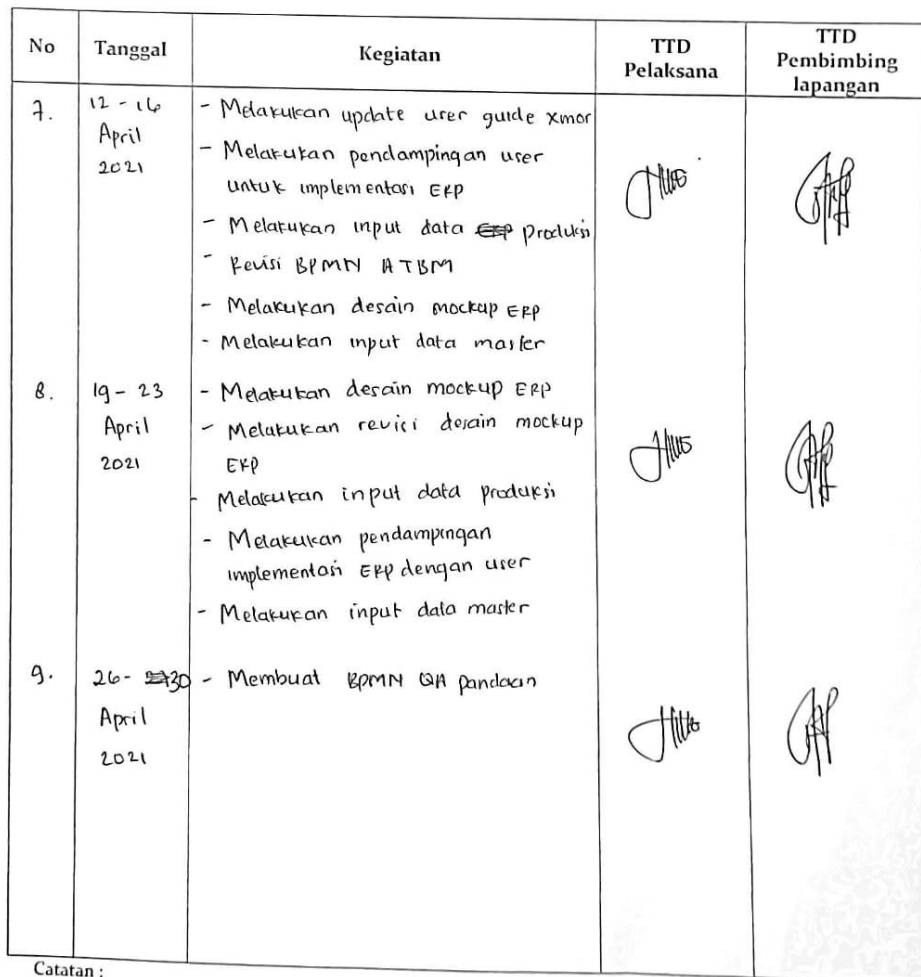 No Tanggal Kegiatan TTD Pelaksana TTD Pembimbing lapangan
7. 12 - 16 April 2021
- Melakukan update user guide xmor
- Melakukan pendampingan user
untuk implementasi ERP
- Melakukan input data produksi
- Revisi BPMN ATBM
- Melakukan desain mockup ERP
- Melakukan input data master
8. 19 - 23 April 2021
- Melakukan desain mockup ERP
- Melakukan revisi desain mockup
ERP
- Melakukan input data produksi
- Melakukan pendampingan
implementasi ERP dengan user
- Melakukan input data master
9. 26 - 30 April 2021
- Membuat BPMN QA Pandaan
Catatan :